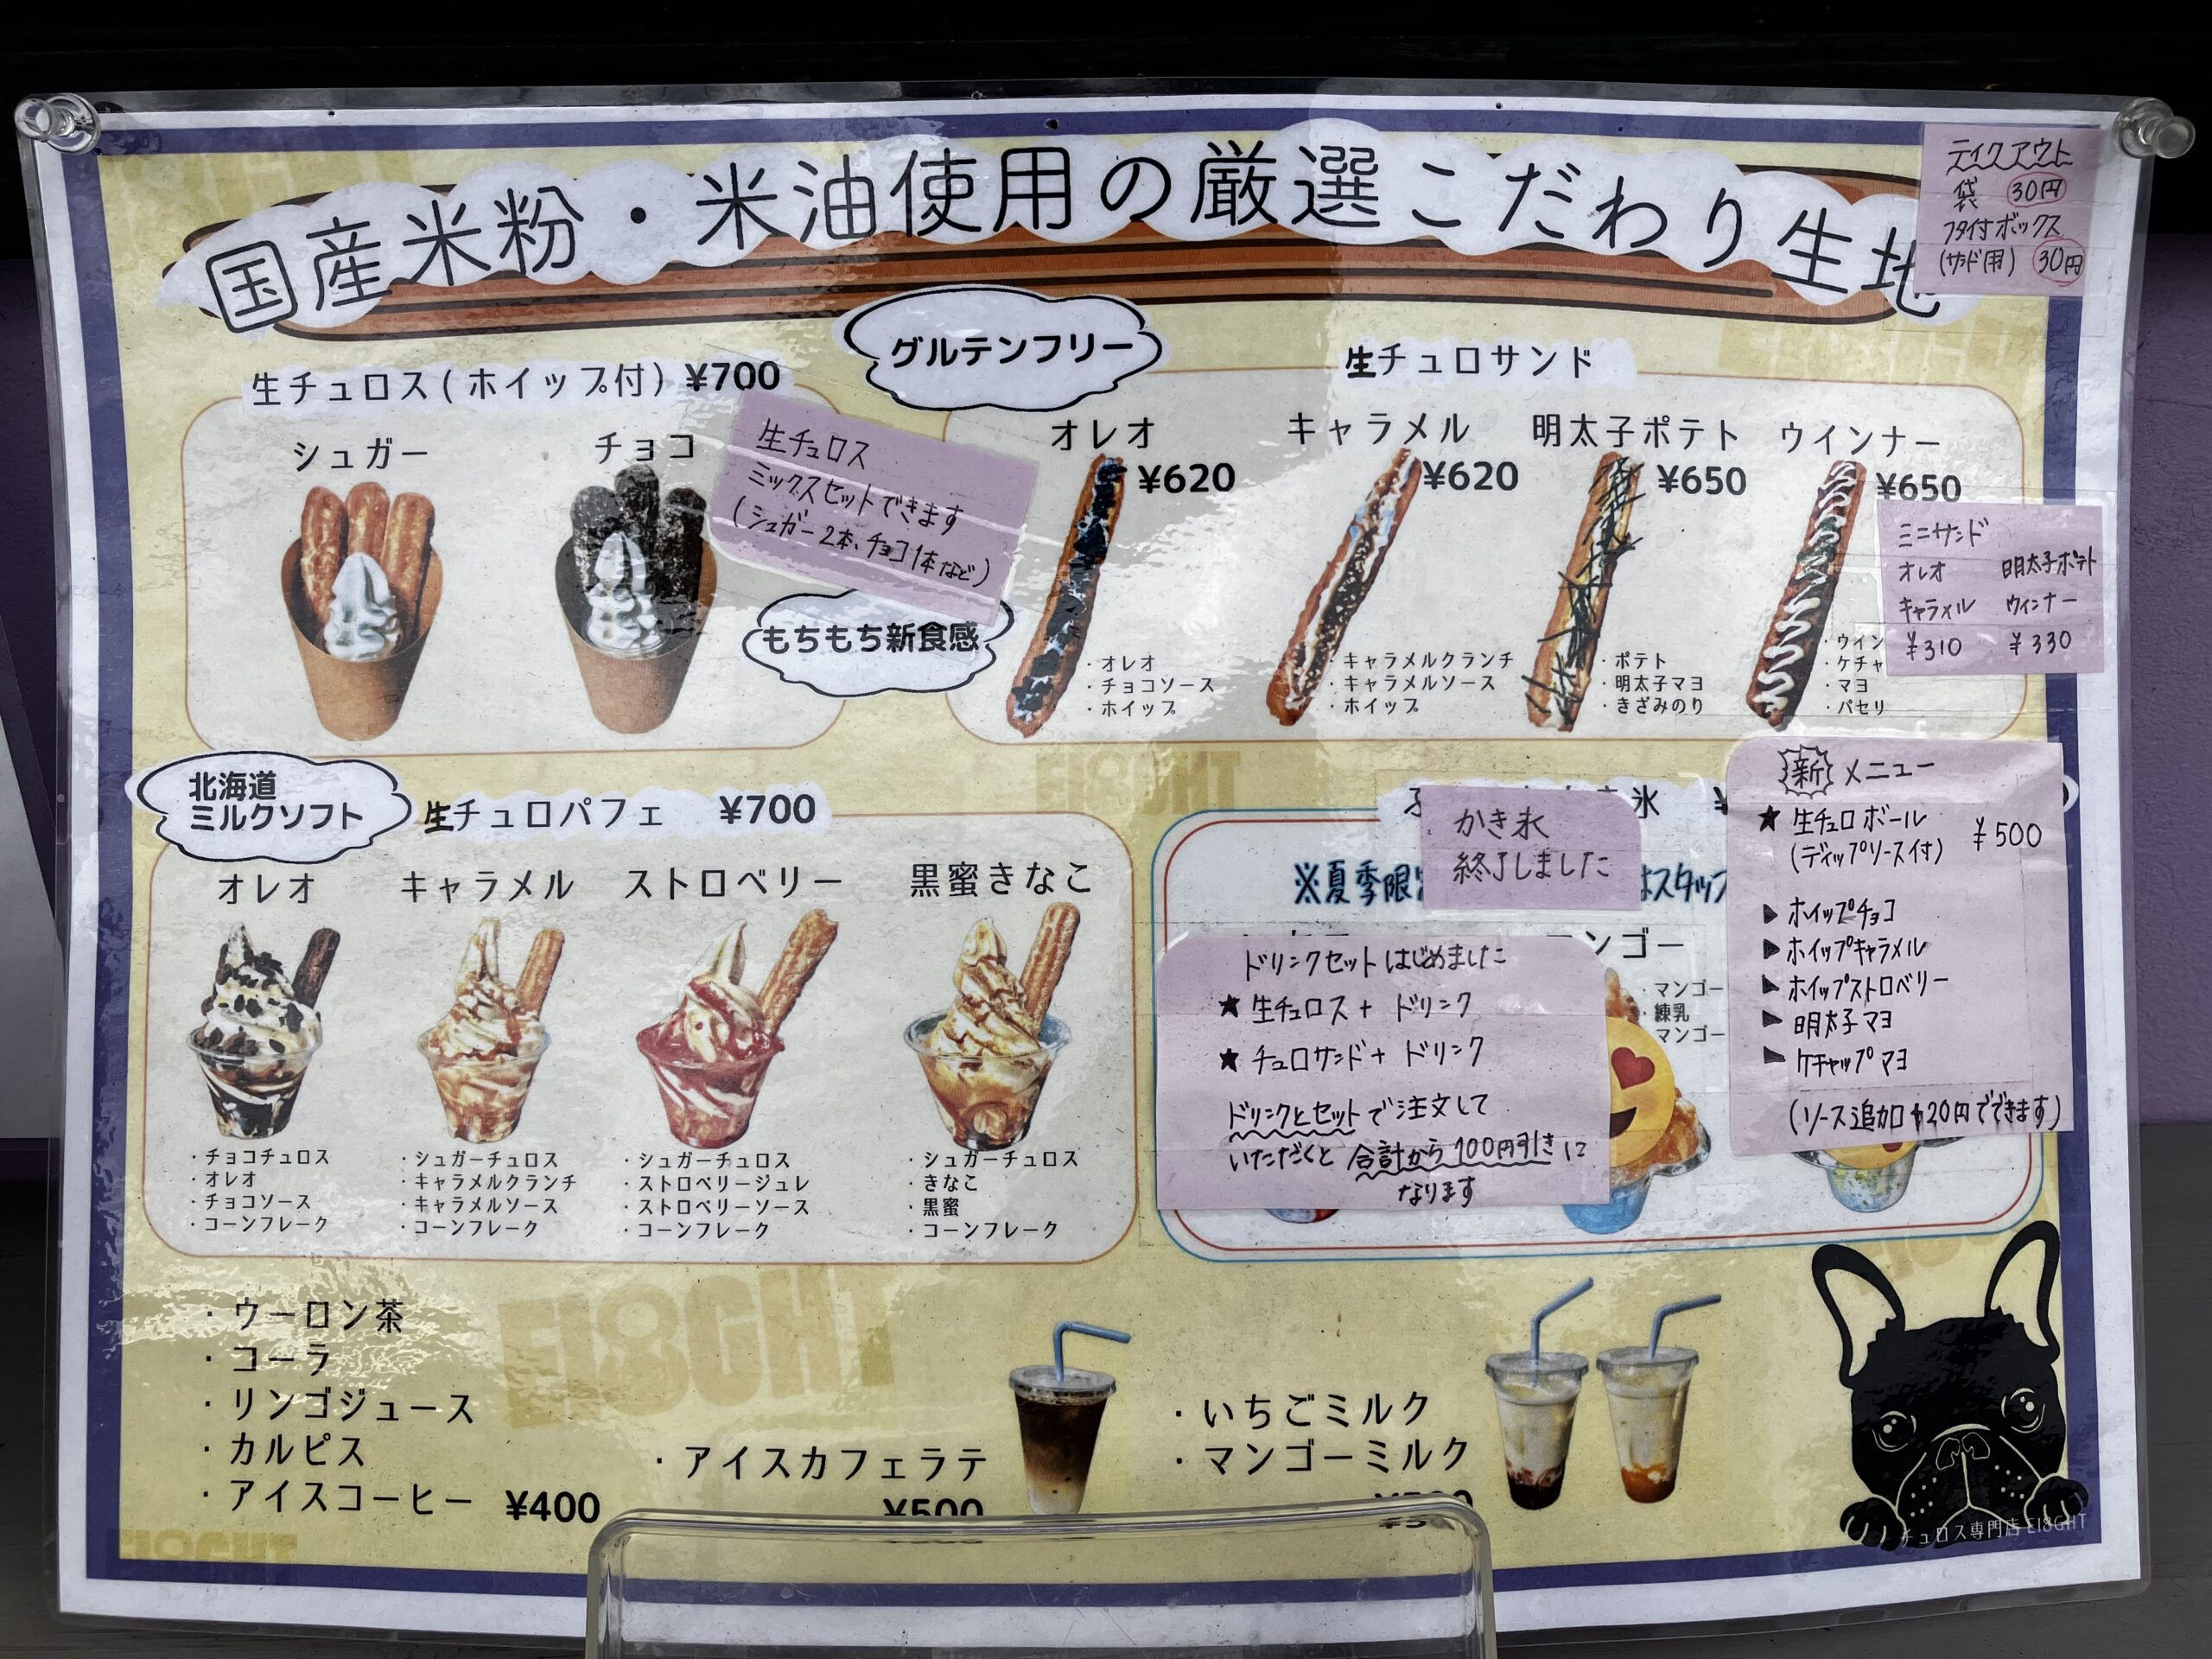 国産米粉・米油使用の厳選こだわり生地
テイクアウト
袋 30円
フタ付ボックス
(サンド用) 30円
グルテンフリー
生チュロス(ホイップ付) ¥700
シュガー
チョコ
生チュロス
ミックスセットできます
(シュガー2本、チョコ1本など)
もちもち新食感
生チュロサンド
オレオ
¥620
・オレオ
・チョコソース
・ホイップ
キャラメル
¥620
・キャラメルクランチ
・キャラメルソース
・ホイップ
明太子ポテト
¥650
・ポテト
・明太子マヨ
・きざみのり
ウインナー
¥650
・ウイン
・ケチャ
・マヨ
・パセリ
ミニサンド
オレオ 明太子ポテト
キャラメル ウィンナー
¥310 ¥330
北海道
ミルクソフト
生チュロパフェ ¥700
オレオ
・チョコチュロス
・オレオ
・チョコソース
・コーンフレーク
キャラメル
・シュガーチュロス
・キャラメルクランチ
・キャラメルソース
・コーンフレーク
ストロベリー
・シュガーチュロス
・ストロベリージュレ
・ストロベリーソース
・コーンフレーク
黒蜜きなこ
・シュガーチュロス
・きなこ
・黒蜜
・コーンフレーク
氷 ¥
かき氷
終了しました
※夏季限 はスタッフ
ンゴー
・マンゴー
・練乳
マンゴー
ドリンクセットはじめました
★ 生チュロス + ドリンク
★ チュロサンド + ドリンク
ドリンクとセットで注文して
いただくと 合計から100円引きに
なります
新 メニュー
★ 生チュロボール
(ディップソース付) ¥500
▶ ホイップチョコ
▶ ホイップキャラメル
▶ ホイップストロベリー
▶ 明太子マヨ
▶ ケチャップマヨ
(ソース追加+20円でできます)
・ウーロン茶
・コーラ
・リンゴジュース
・カルピス
・アイスコーヒー ¥400
・アイスカフェラテ
¥500
・いちごミルク
・マンゴーミルク
EI8GHT
EI8GHT
EI8GHT
チュロス専門店 EI8GHT